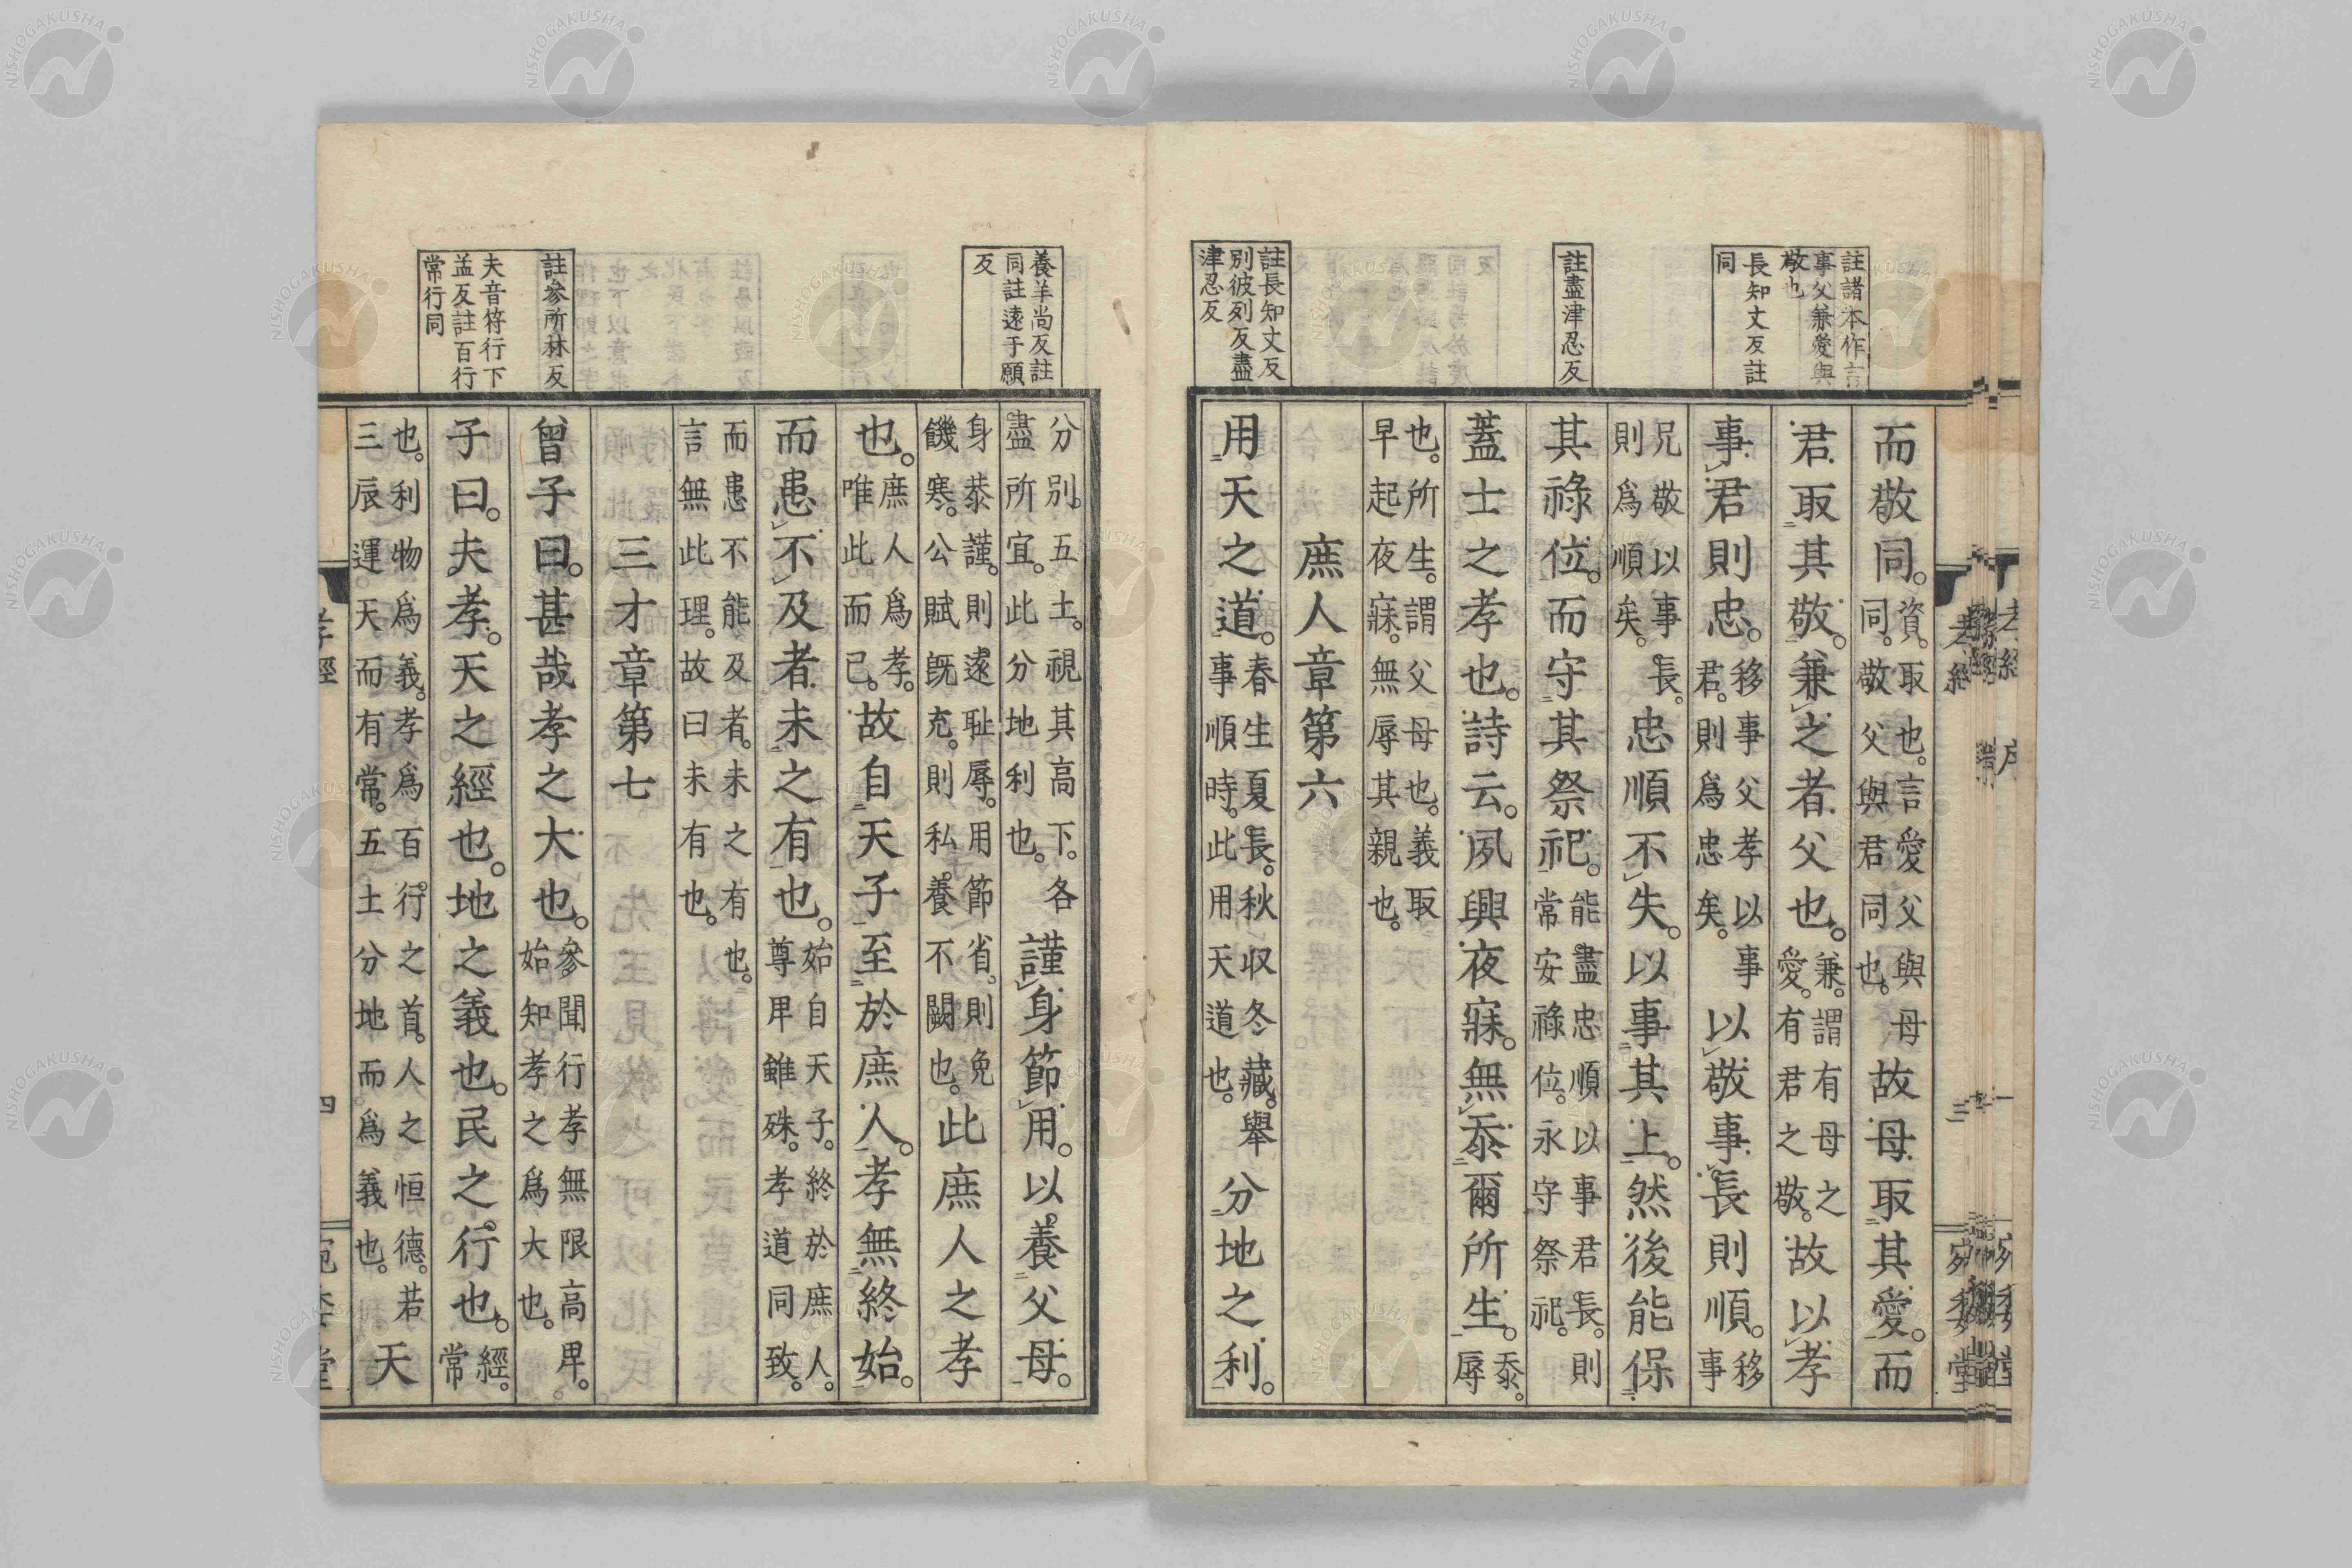 註諸本作言
事父兼愛與
敬也
長知丈反註
同
註盡津忍反
註長知丈反
別彼列反盡
津忍反
而敬同。資。取也。言愛父與母同。敬父與君同也。故母取其愛。而
君取其敬。兼之者父也。兼。謂有母之愛。有君之敬。故以孝
事君則忠。移事父孝以事君。則爲忠矣。以敬事長則順。移事
兄敬以事長。則爲順矣。忠順不失。以事其上。然後能保
其祿位。而守其祭祀。能盡忠順以事君長。則常安祿位。永守祭祀。
蓋士之孝也。詩云。夙興夜寐。無忝爾所生。忝。辱
也。所生。謂父母也。義取早起夜寐。無辱其親也。
庶人章第六
用天之道。春生夏長。秋収冬藏。舉事順時。此用天道也。分地之利。
養羊尚反註
同註遠于願
反
註參所林反
夫音符行下
孟反註百行
常行同
分別五土。視其高下。各盡所宜。此分地利也。謹身節用。以養父母。
身恭謹。則遠耻辱。用節省。則免饑寒。公賦既充。則私養不闕也。此庶人之孝
也。庶人爲孝。唯此而已。故自天子至於庶人。孝無終始。
而患不及者。未之有也。始自天子。終於庶人。尊卑雖殊。孝道同致。
而患不能及者。未之有也。言無此理。故曰未有也。
三才章第七
曾子曰。甚哉孝之大也。參聞行孝無限高卑。始知孝之爲大也。
子曰。夫孝。天之經也。地之義也。民之行也。經。常
也。利物爲義。孝爲百行之首。人之恒德。若三辰運天而有常。五土分地而爲義也。天
孝經
四